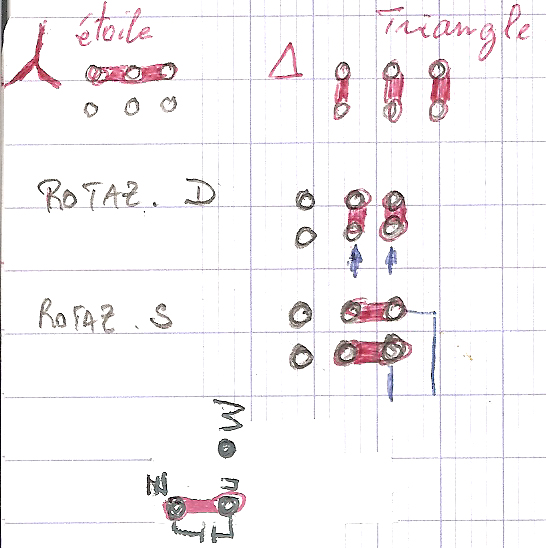 étoile Triangle
Δ
ROTAZ. D
ROTAZ. S